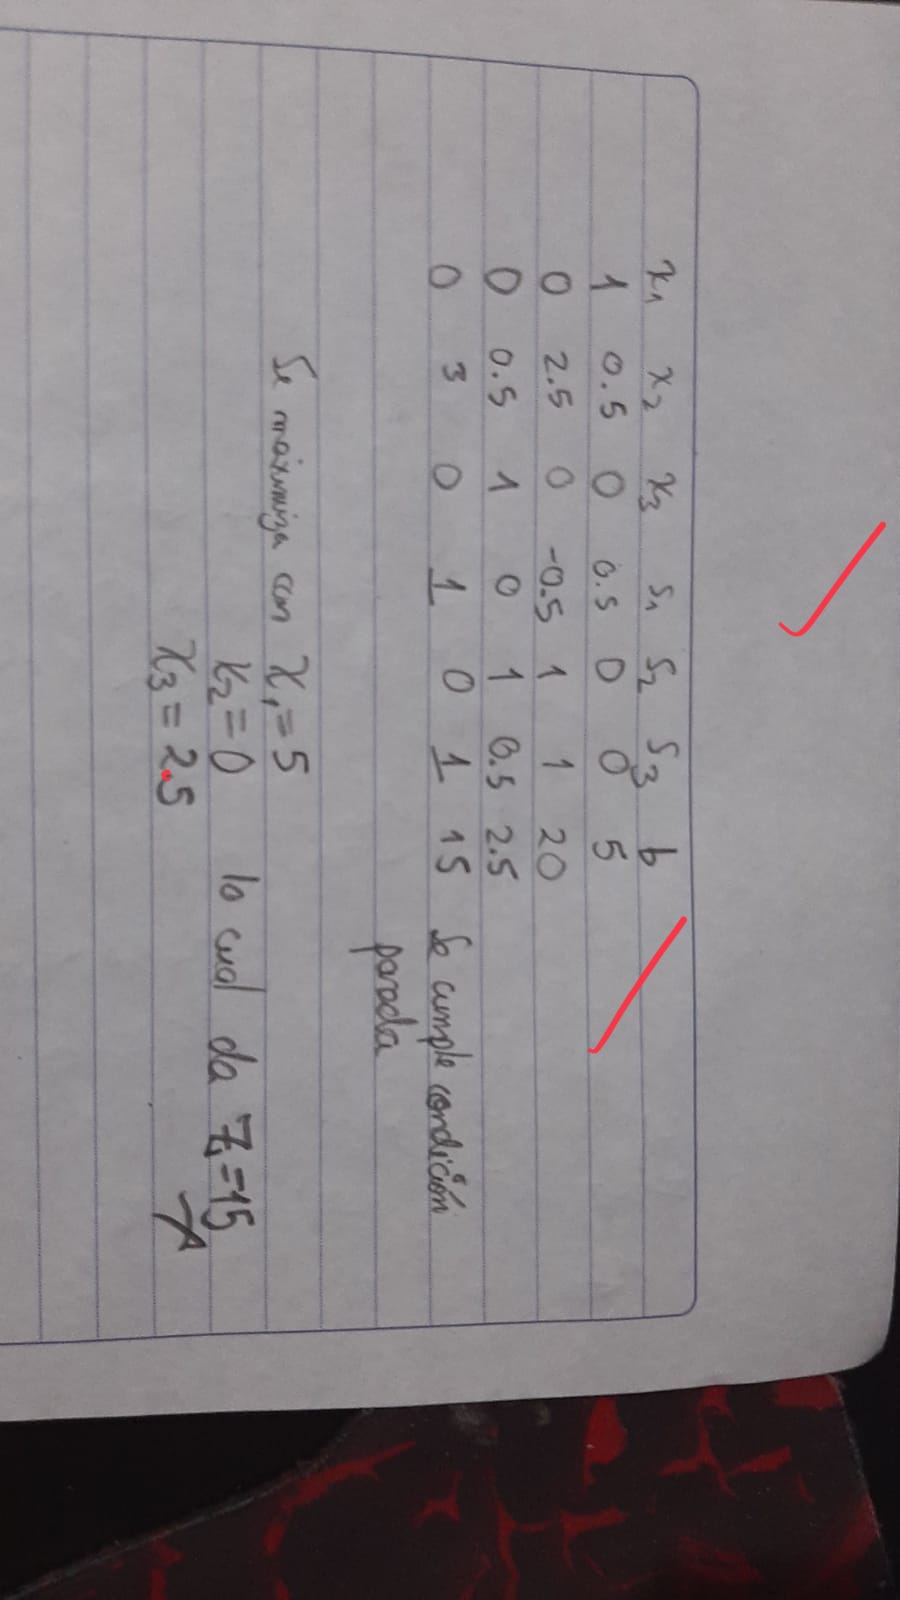 x₁ x₂ x₃ s₁ s₂ s₃ b
1 0.5 0 0.5 0 0 5
0 2.5 0 -0.5 1 1 20
0 0.5 1 0 1 0.5 2.5
0 3 0 1 0 1 15 Se cumple condición
parada
Se máximiza con x₁=5
x₂=0 lo cual da Z=15
x₃=2.5